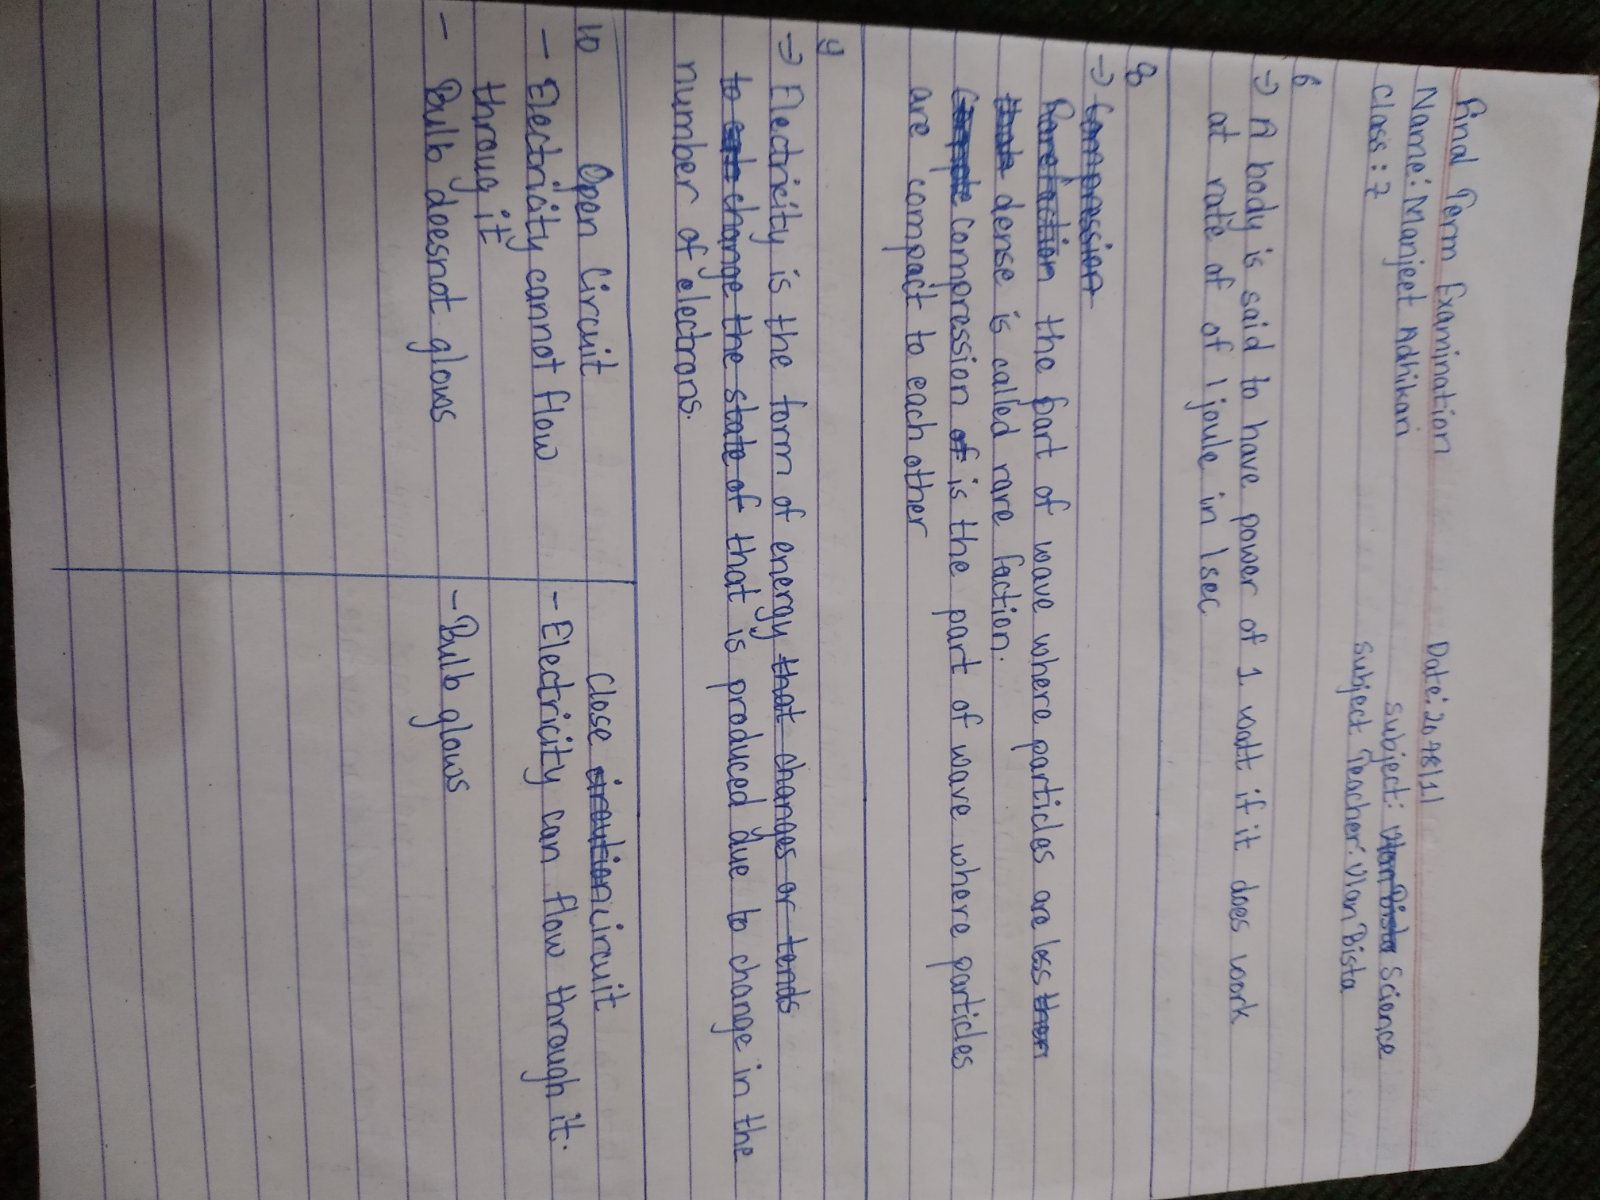 Final Term Examination
Name: Manjeet Adhikari Date: 2078/1/
Class: 7 Subject: Science
Subject Teacher: Vlan Bista
6
→ A body is said to have power of 1 watt if it does work
at rate of of 1 joule in 1 sec
8
→ Compression
Rarefaction the part of wave where particles are less then
dense is called rare faction.
Compression of is the part of wave where particles
are compact to each other
9
→ Electricity is the form of energy that changes or tends
to change the state of that is produced due to change in the
number of electrons.
10 Open Circuit Close circuit
- Electricity cannot flow - Electricity can flow through it.
throug it
- Bulb doesnot glows - Bulb glows